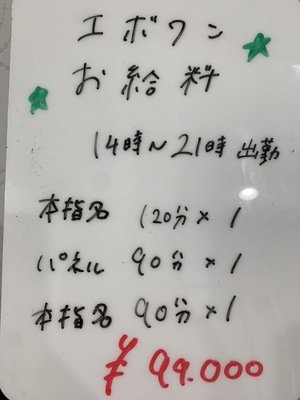 エボワン
お給料
14時～21時 出勤
本指名 120分×1
パネル 90分×1
本指名 90分×1
¥99.000